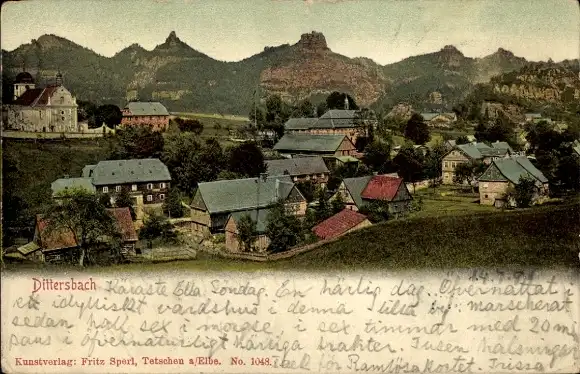 Dittersbach
Käraste Ella Söndag. En härlig dag. Öfvernattat i
ett idylliskt värdshus i denna lilla by. marscherat
sedan half sex i morse, i sex timmar med 20 min
paus i öfvernaturligt härliga trakter. Tusen hälsningar
Kunstverlag: Fritz Sperl, Tetschen a/Elbe. No. 1048.
för